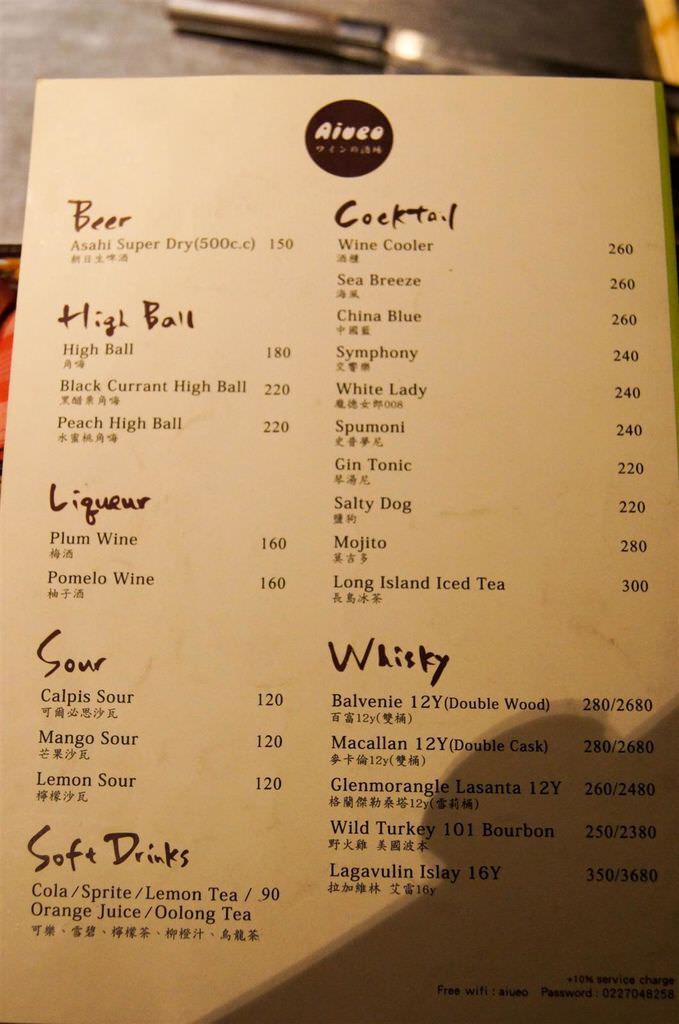 Aiueo
ワインの酒場
Beer
Asahi Super Dry(500c.c) 150
朝日生啤酒
High Ball
High Ball 180
角嗨
Black Currant High Ball 220
黑醋栗角嗨
Peach High Ball 220
水蜜桃角嗨
Liqueur
Plum Wine 160
梅酒
Pomelo Wine 160
柚子酒
Sour
Calpis Sour 120
可爾必思沙瓦
Mango Sour 120
芒果沙瓦
Lemon Sour 120
檸檬沙瓦
Soft Drinks
Cola/Sprite/Lemon Tea / 90
Orange Juice/Oolong Tea
可樂、雪碧、檸檬茶、柳橙汁、烏龍茶
Cocktail
Wine Cooler 260
酒櫃
Sea Breeze 260
海風
China Blue 260
中國藍
Symphony 240
交響樂
White Lady 240
龐德女郎008
Spumoni 240
史普夢尼
Gin Tonic 220
琴湯尼
Salty Dog 220
鹽狗
Mojito 280
莫吉多
Long Island Iced Tea 300
長島冰茶
Whisky
Balvenie 12Y(Double Wood) 280/2680
百富12y(雙桶)
Macallan 12Y(Double Cask) 280/2680
麥卡倫12y(雙桶)
Glenmorangle Lasanta 12Y 260/2480
格蘭傑勒桑塔12y(雪莉桶)
Wild Turkey 101 Bourbon 250/2380
野火雞 美國波本
Lagavulin Islay 16Y 350/3680
拉加維林 艾雷16y
+10% service charge
Free wifi : aiueo Password : 0227048258